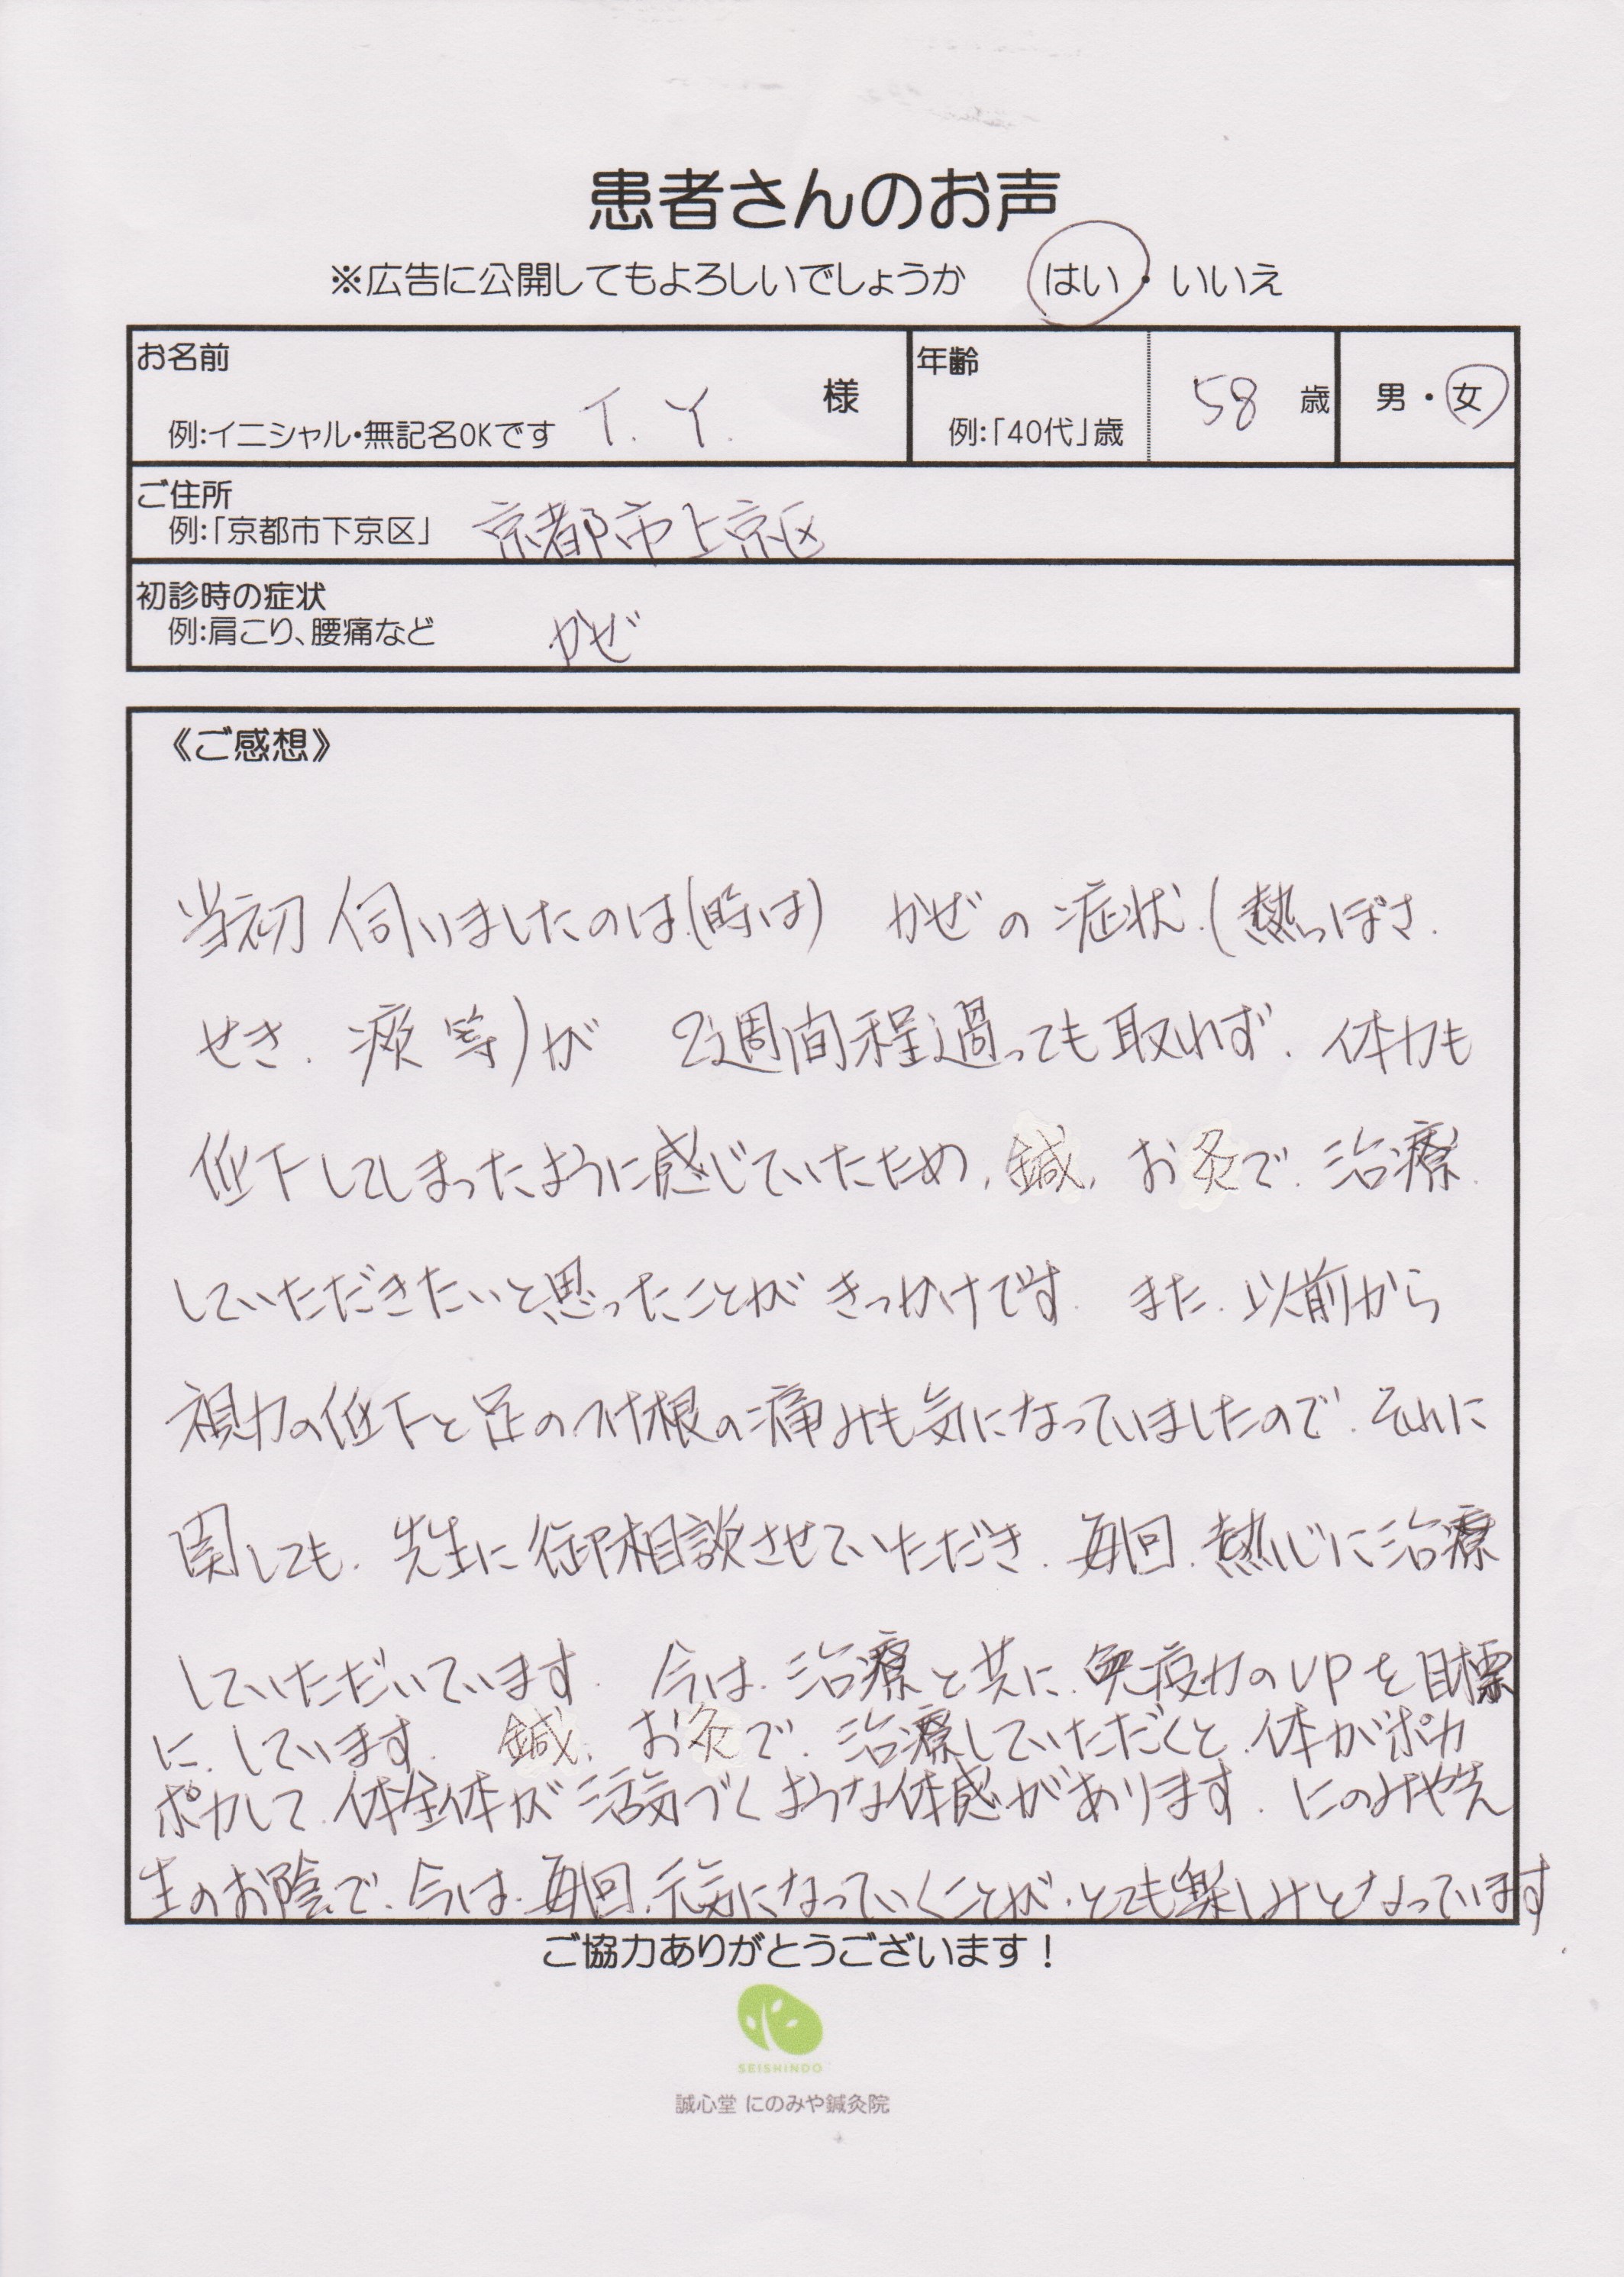 患者さんのお声
※広告に公開してもよろしいでしょうか はい・いいえ
お名前
例:イニシャル・無記名OKです T. Y. 様
年齢
例:「40代」歳 58 歳
男・女
ご住所
例:「京都市下京区」 京都市上京区
初診時の症状
例:肩こり、腰痛など かぜ
《ご感想》
当初伺いましたのは(時は) かぜの症状(熱っぽさ、
せき、痰等)が 2週間程過っても取れず、体力も
低下してしまったように感じていたため、鍼、お灸で、治療
していただきたいと思ったことがきっかけです。また、以前から
視力の低下と足のつけ根の痛みも気になっていましたので、それに
関しても、先生に御相談させていただき、毎回、熱心に治療
していただいています。今は、治療と共に、免疫力のUPを目標
に、しています。鍼、お灸で、治療していただくと、体がポカ
ポカして、体全体が活気づくような体感があります。にのみや先
生のお陰で、今は、毎回、元気になっていくことが、とても楽しみとなっています
ご協力ありがとうございます!
SEISHINDO
誠心堂 にのみや鍼灸院